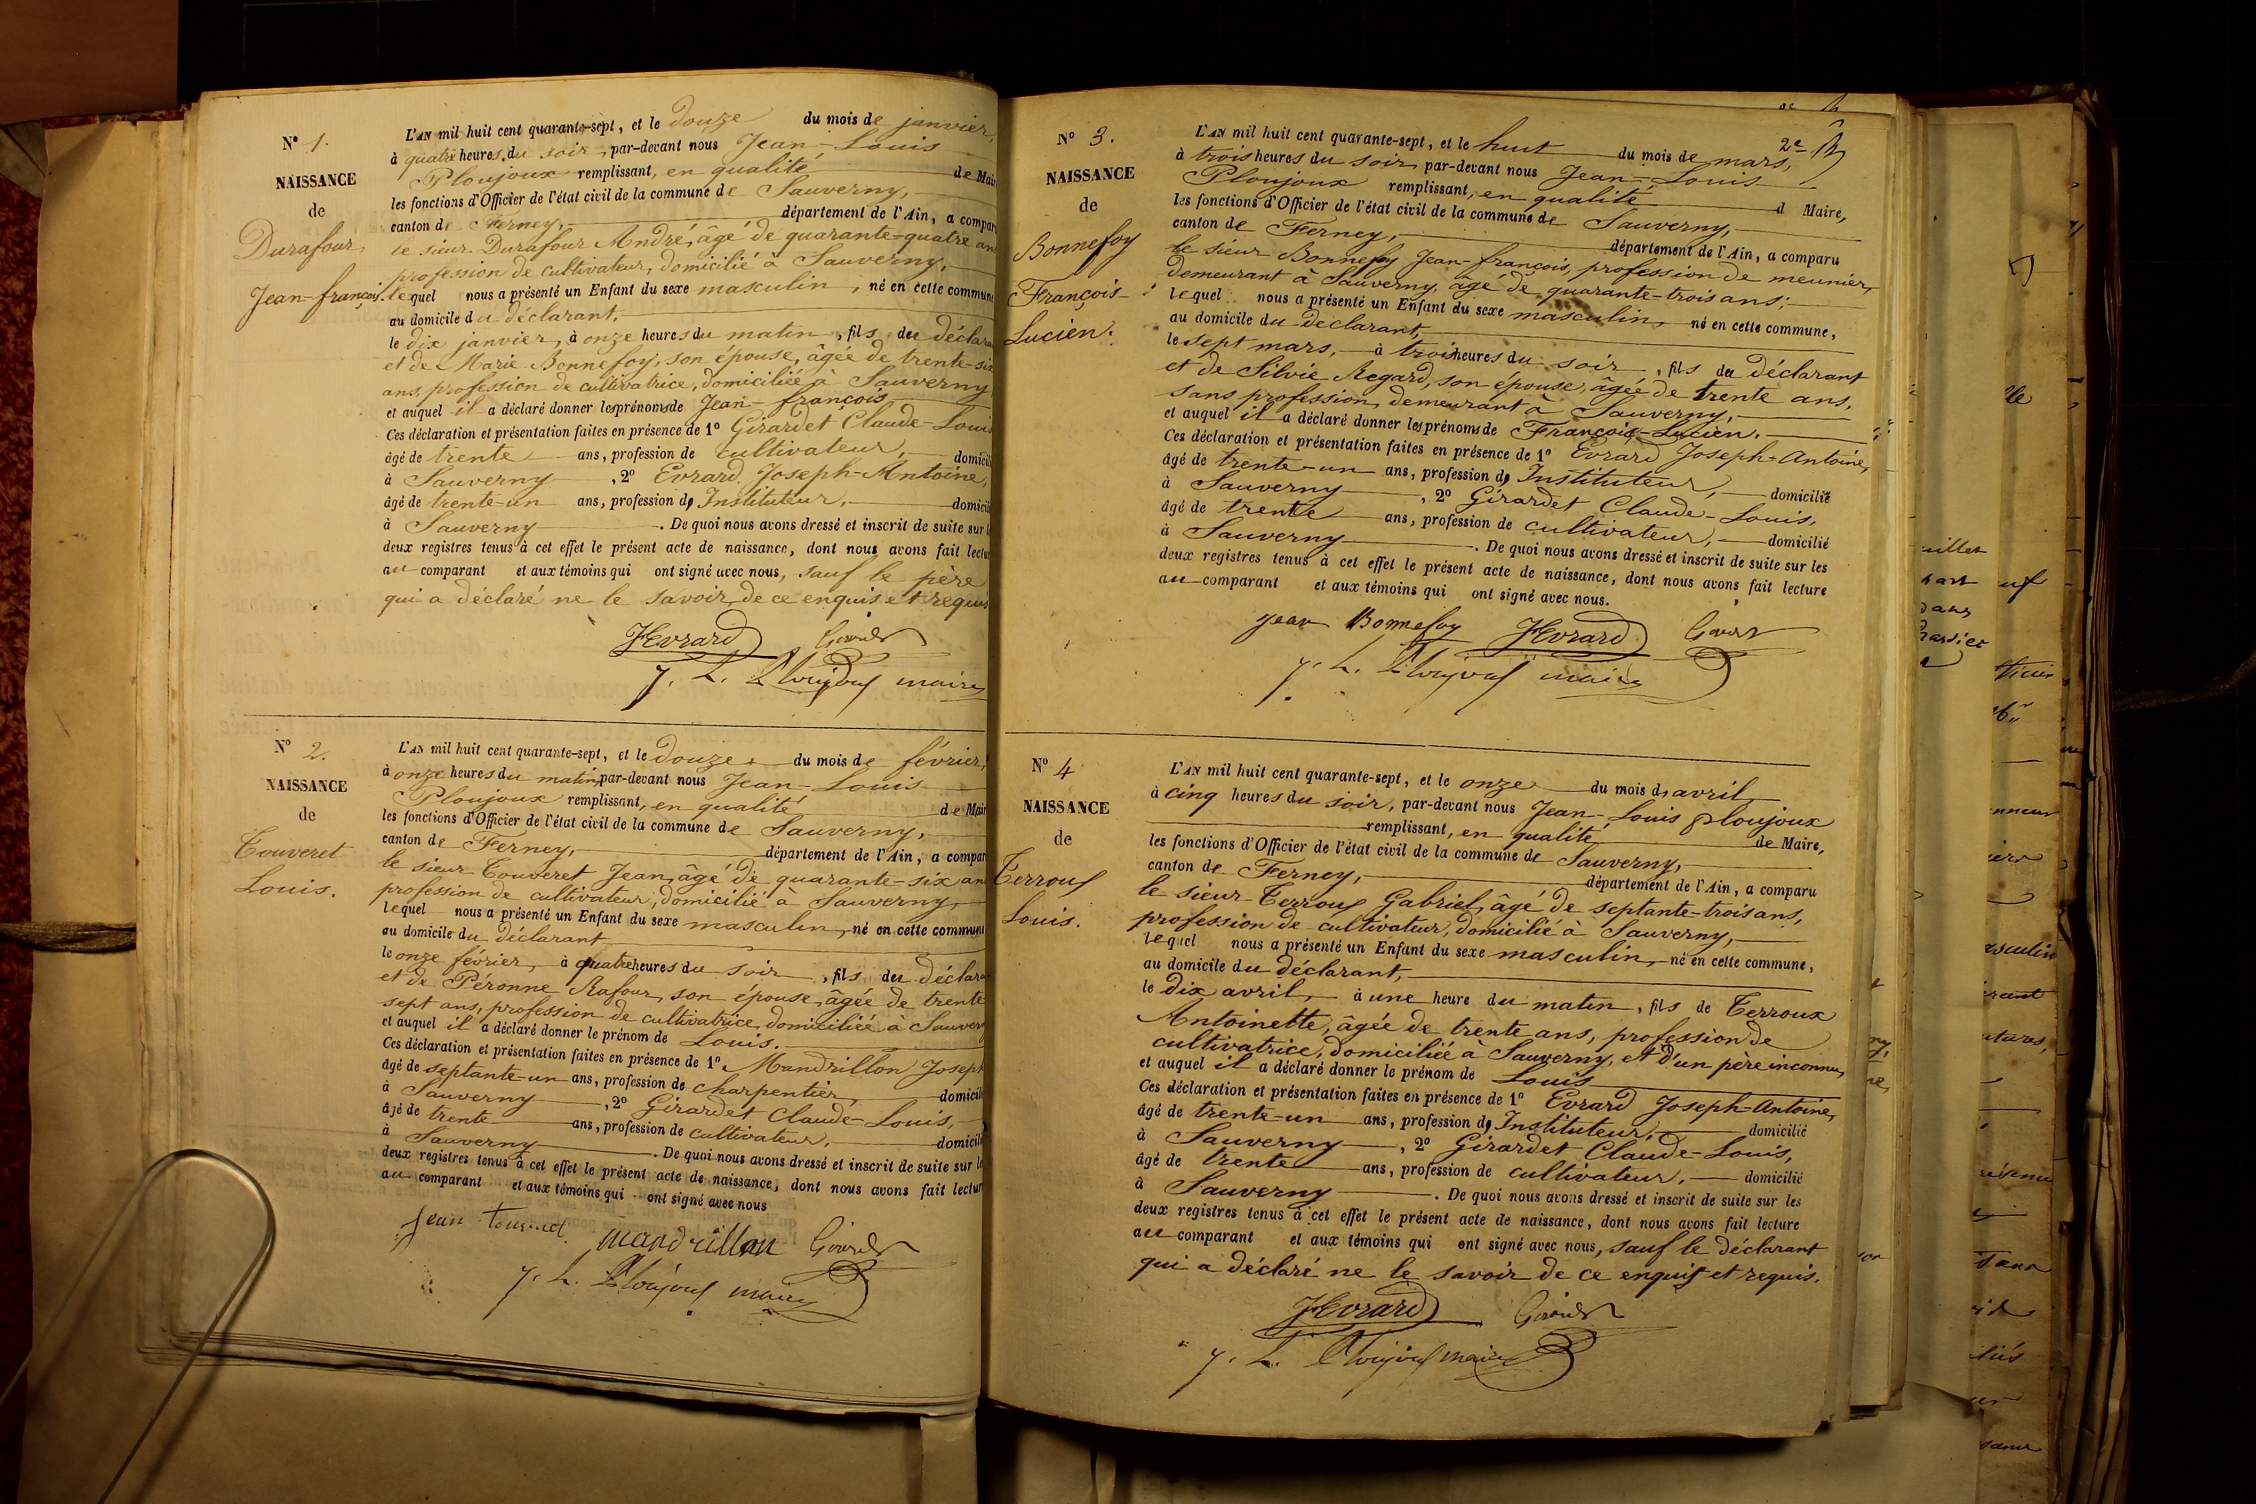 N° 1.
NAISSANCE
de
Durafour,
Jean-françois.
L'AN mil huit cent quarante-sept, et le douze du mois de janvier,
à quatre heures du soir, par-devant nous Jean-Louis
Ploujoux remplissant, en qualité de Mai
les fonctions d'Officier de l'état civil de la commune de Sauverny,
canton de Ferney, département de l'Ain, a compar
le sieur Durafour André, âgé de quarante-quatre an
profession de cultivateur, domicilié à Sauverny,
lequel nous a présenté un Enfant du sexe masculin, né en cette commun
au domicile du déclarant,
le dix janvier, à onze heures du matin, fils du déclara
et de Marie Bonnefoy, son épouse, âgée de trente-six
ans, profession de cultivatrice, domiciliée à Sauverny
et auquel il a déclaré donner les prénoms de Jean-françois
Ces déclaration et présentation faites en présence de 1° Girardet Claude-Louis
âgé de trente ans, profession de cultivateur, domicili
à Sauverny, 2° Evrard Joseph-Antoine,
âgé de trente-un ans, profession d'Instituteur, domicili
à Sauverny. De quoi nous avons dressé et inscrit de suite sur l
deux registres tenus à cet effet le présent acte de naissance, dont nous avons fait lectu
au comparant et aux témoins qui ont signé avec nous, sauf le père
qui a déclaré ne le savoir, de ce enquis et requis
JEvrard Girardet
J. L. Ploujoux maire
N° 2.
NAISSANCE
de
Touveret
Louis.
L'AN mil huit cent quarante-sept, et le douze du mois de février,
à onze heures du matin, par-devant nous Jean-Louis
Ploujoux remplissant, en qualité de Mair
les fonctions d'Officier de l'état civil de la commune de Sauverny,
canton de Ferney, département de l'Ain, a compar
le sieur Touveret Jean, âgé de quarante-six an
profession de cultivateur, domicilié à Sauverny,
lequel nous a présenté un Enfant du sexe masculin, né en cette commune
au domicile du déclarant
le onze février, à quatre heures du soir, fils du déclara
et de Péronne Rafour, son épouse, âgée de trente
sept ans, profession de cultivatrice, domiciliée à Sauver
et auquel il a déclaré donner le prénom de Louis.
Ces déclaration et présentation faites en présence de 1° Mandrillon Josep
âgé de septante-un ans, profession de charpentier, domicili
à Sauverny, 2° Girardet Claude-Louis,
âgé de trente ans, profession de cultivateur, domicili
à Sauverny. De quoi nous avons dressé et inscrit de suite sur l
deux registres tenus à cet effet le présent acte de naissance, dont nous avons fait lectur
au comparant et aux témoins qui ont signé avec nous
Jean mandrillon Girardet
J. L. Ploujoux maire
N° 3.
NAISSANCE
de
Bonnefoy
François-
Lucien.
2e
L'AN mil huit cent quarante-sept, et le huit du mois de mars,
à trois heures du soir, par-devant nous Jean-Louis
Ploujoux remplissant, en qualité d Maire,
les fonctions d'Officier de l'état civil de la commune de Sauverny,
canton de Ferney, département de l'Ain, a comparu
le sieur Bonnefoy Jean-françois, profession de meunier,
demeurant à Sauverny, âgé de quarante-trois ans;
lequel nous a présenté un Enfant du sexe masculin, né en cette commune,
au domicile du déclarant,
le sept mars, à trois heures du soir, fils du déclarant
et de Silvie Regard, son épouse, âgée de trente ans,
sans profession, demeurant à Sauverny,
et auquel il a déclaré donner les prénoms de François-Lucien.
Ces déclaration et présentation faites en présence de 1° Evrard Joseph-Antoine,
âgé de trente-un ans, profession d'Instituteur, domicilié
à Sauverny, 2° Girardet Claude-Louis,
âgé de trente ans, profession de cultivateur, domicilié
à Sauverny. De quoi nous avons dressé et inscrit de suite sur les
deux registres tenus à cet effet le présent acte de naissance, dont nous avons fait lecture
au comparant et aux témoins qui ont signé avec nous.
jean Bonnefoy JEvrard Girardet
J. L. Ploujoux maire
N° 4
NAISSANCE
de
Terroux
Louis.
L'AN mil huit cent quarante-sept, et le onze du mois d'avril
à cinq heures du soir, par-devant nous Jean-Louis ploujoux
remplissant, en qualité de Maire,
les fonctions d'Officier de l'état civil de la commune de Sauverny,
canton de Ferney, département de l'Ain, a comparu
le sieur Terroux Gabriel, âgé de septante-trois ans,
profession de cultivateur, domicilié à Sauverny,
lequel nous a présenté un Enfant du sexe masculin, né en cette commune,
au domicile du déclarant,
le dix avril, à une heure du matin, fils de Terroux
Antoinette, âgée de trente ans, profession de
cultivatrice, domiciliée à Sauverny, et d'un père inconnu,
et auquel il a déclaré donner le prénom de Louis
Ces déclaration et présentation faites en présence de 1° Evrard Joseph-Antoine,
âgé de trente-un ans, profession d'Instituteur, domicilié
à Sauverny, 2° Girardet Claude-Louis,
âgé de trente ans, profession de cultivateur, domicilié
à Sauverny. De quoi nous avons dressé et inscrit de suite sur les
deux registres tenus à cet effet le présent acte de naissance, dont nous avons fait lecture
au comparant et aux témoins qui ont signé avec nous, sauf le déclarant
qui a déclaré ne le savoir de ce enquis et requis.
JEvrard Girardet
J. L. Ploujoux maire